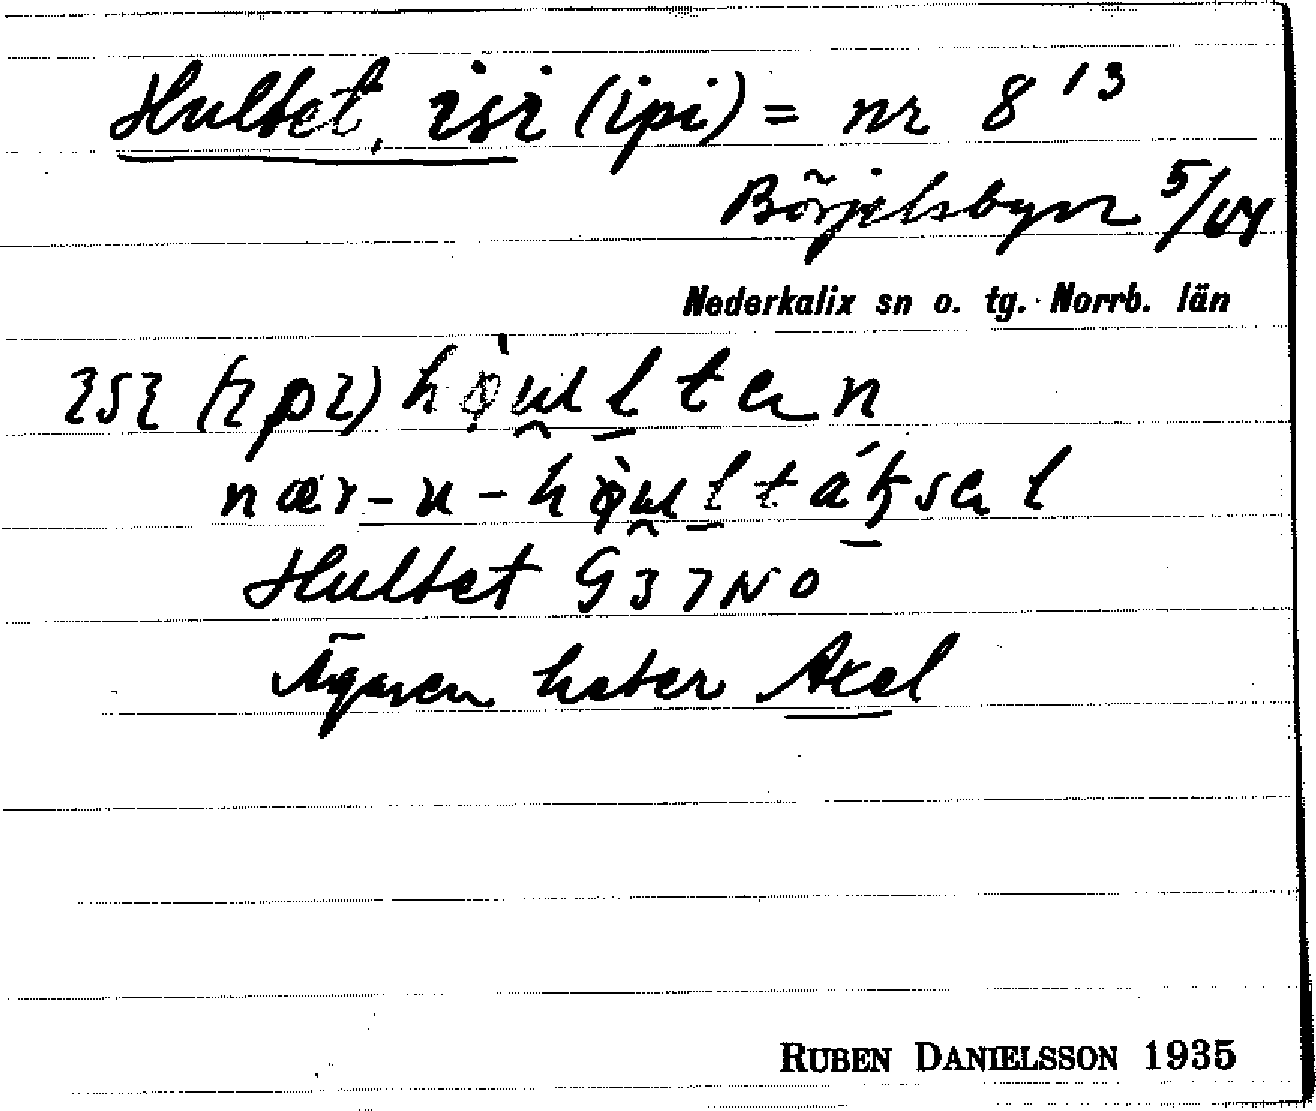 Hultet, isi (ipi) = nr 8 13
Börjelsbyn 5/
Nederkalix sn o. tg. Norrb. län
ɩsɩ (ɩpɩ) hǫ̀u̯l̠ten
nær-u-hǫ̀u̯l̠táksel
Hultet G 37 NO
Ägaren heter Axel
RUBEN DANIELSSON 1935